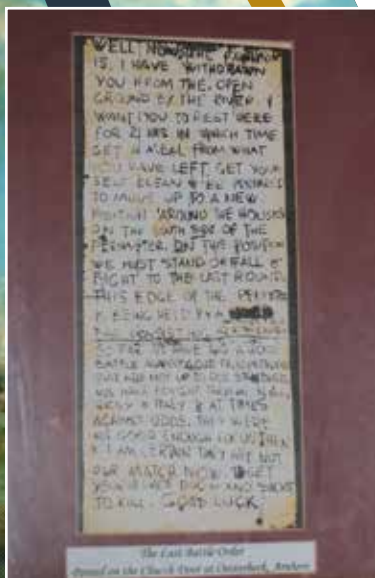 WELL NOW THE POSITION
IS. I HAVE WITHDRAWN
YOU FROM THE OPEN
GROUND BY THE RIVER. I
WANT YOU TO REST HERE
FOR 2 HRS IN WHICH TIME
GET A MEAL FROM WHAT
YOU HAVE LEFT. GET YOUR
SELF CLEAN & BE PREPARED
TO MOVE UP TO A NEW
POSITION AROUND THE HOUSES
ON THE SOUTH SIDE OF THE
PERIMETER. ON THIS POSITION
WE MUST STAND OR FALL &
FIGHT TO THE LAST ROUND.
THIS EDGE OF THE
IS BEING HELD BY A
SO FAR WE HAVE
BATTLE AGAINST GOOD
THAT ARE NOT UP TO OUR STANDARDS
WE HAVE FOUGHT THEM IN
SICILY & ITALY & AT TIMES
AGAINST ODDS. THEY WERE
NOT GOOD ENOUGH FOR US THEN
& I AM CERTAIN THEY ARE NOT
OUR MATCH NOW.
DUG IN AND SHOOT
TO KILL. GOOD LUCK
The Last Battle Order
Posted on the Church Door at Oosterbeek, Arnhem